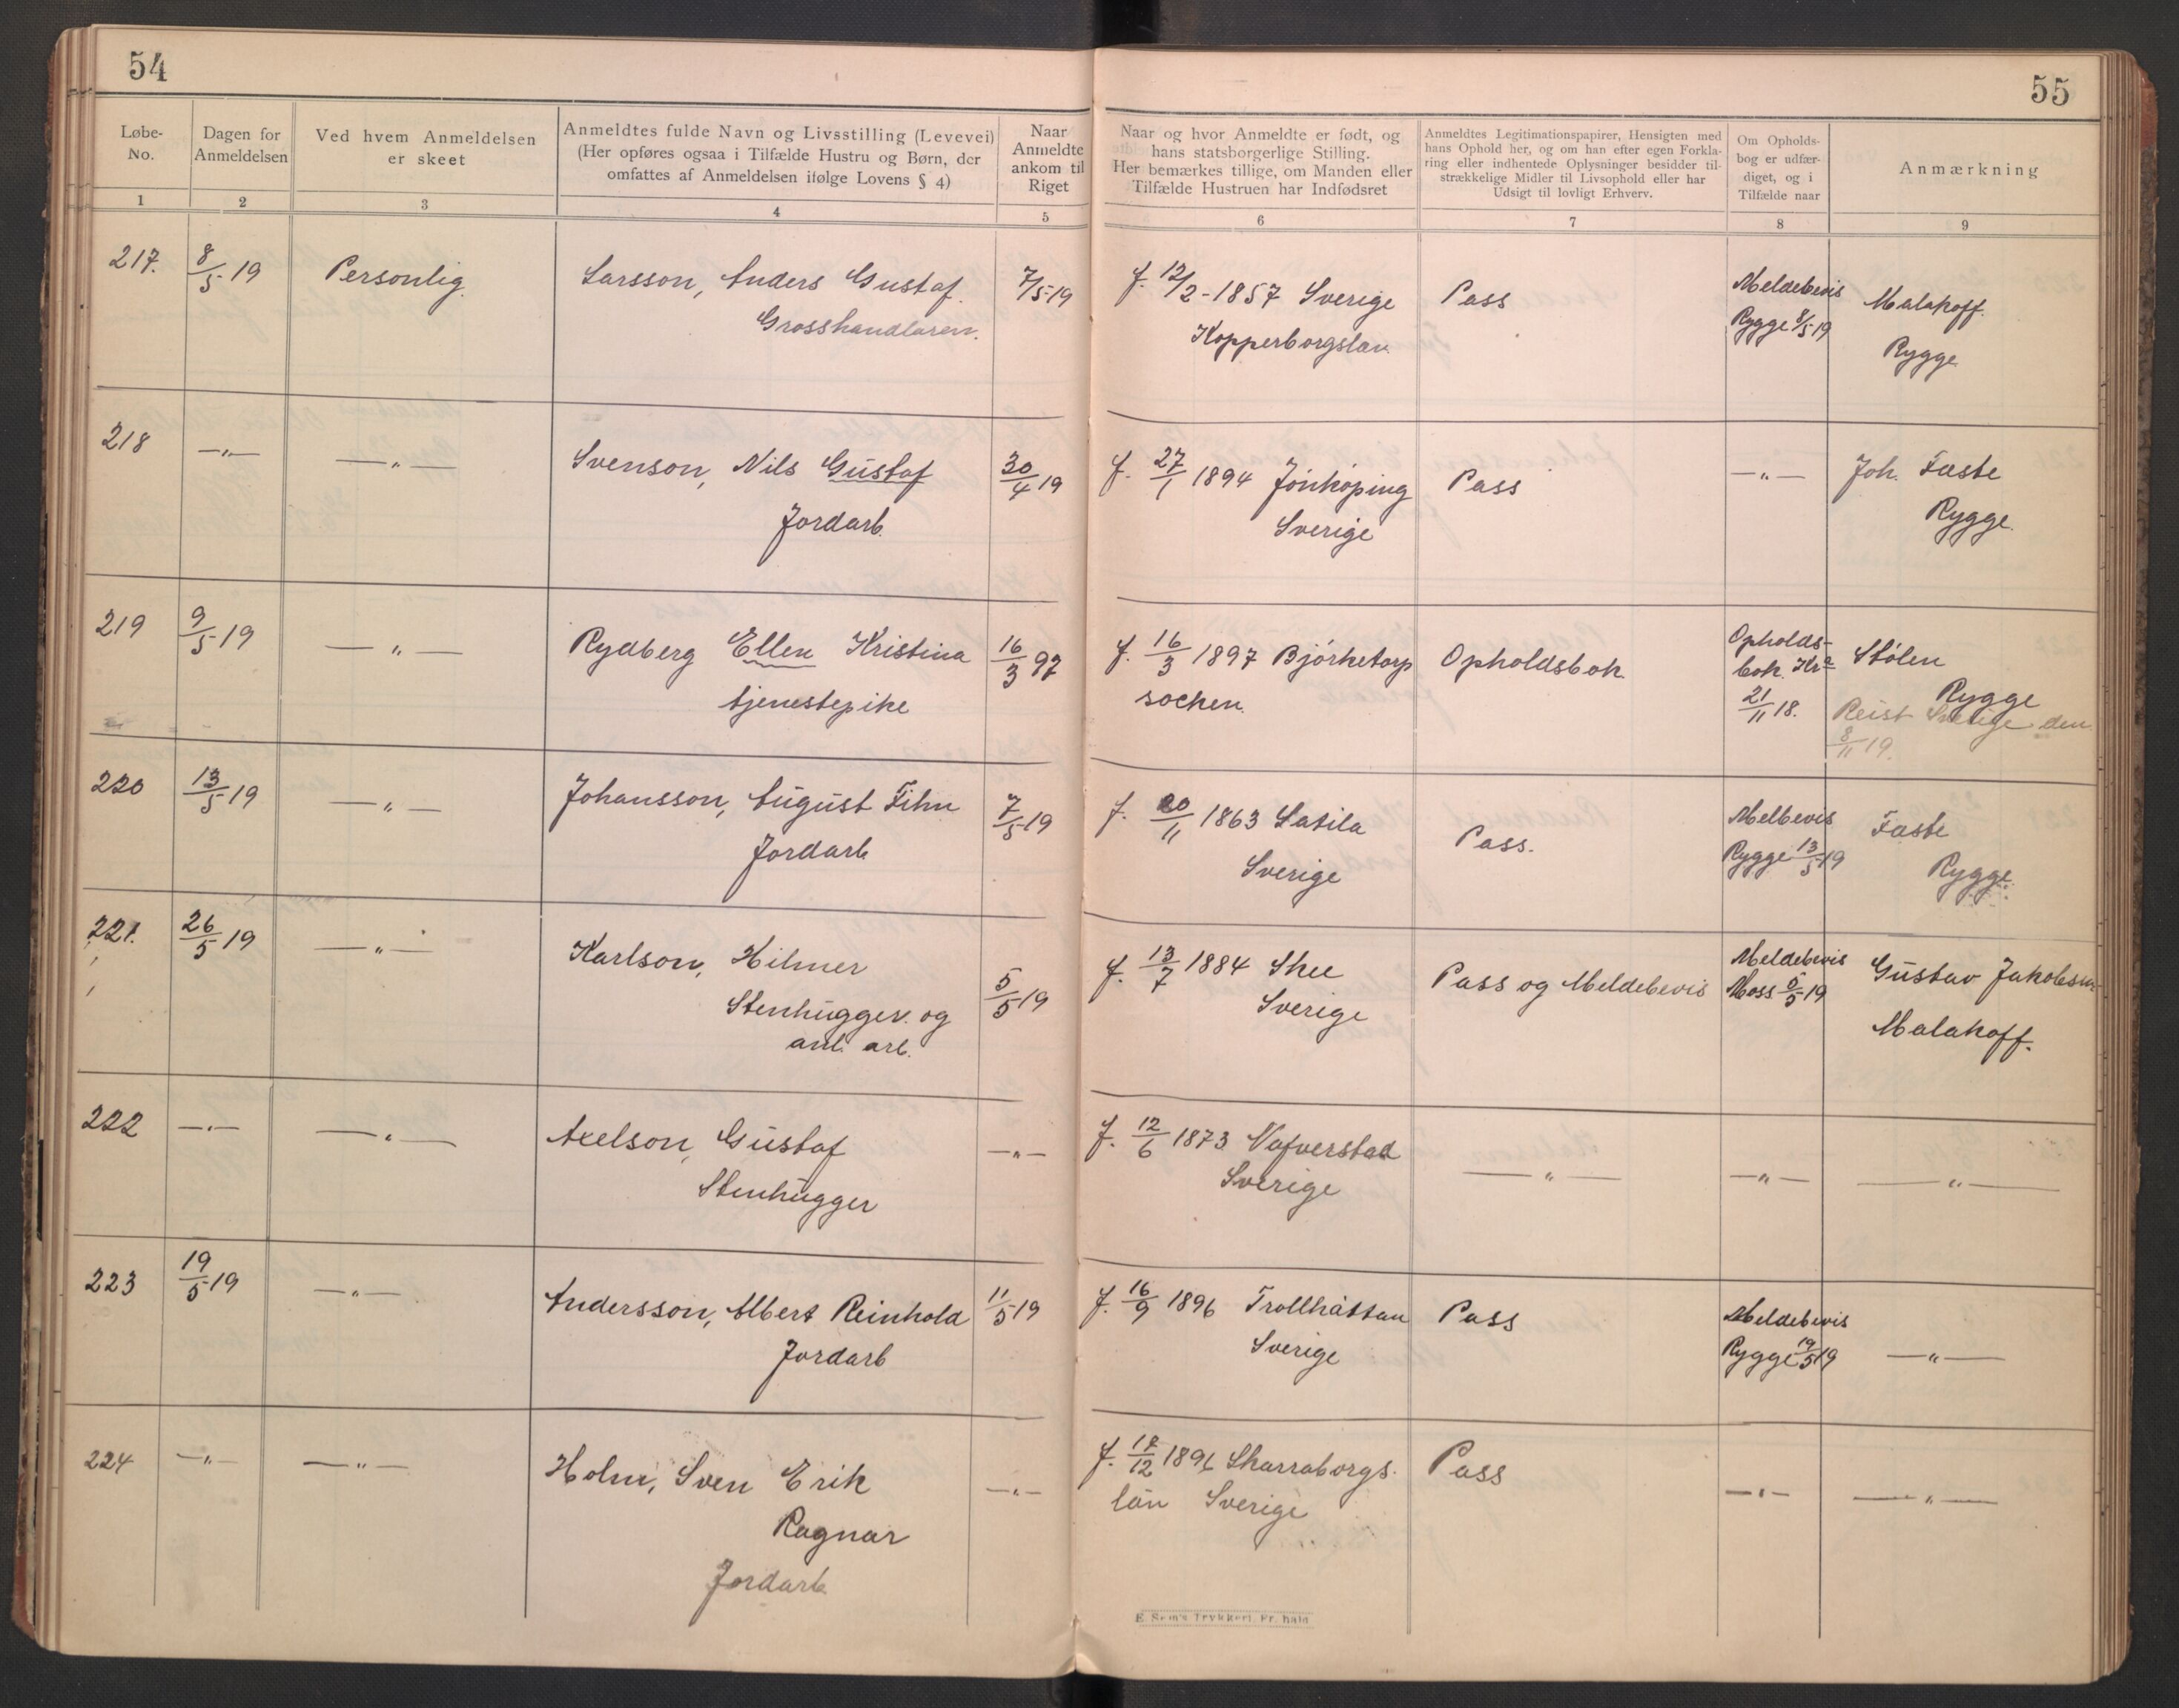 54
55
Løbe-
No.
Dagen for
Anmeldelsen
Ved hvem Anmeldelsen
er skeet
Anmeldtes fulde Navn og Livsstilling (Levevei)
(Her opføres ogsaa i Tilfælde Hustru og Børn, der
omfattes af Anmeldelsen ifølge Lovens § 4)
Naar
Anmeldte
ankom til
Riget
Naar og hvor Anmeldte er født, og
hans statsborgerlige Stilling.
Her bemærkes tillige, om Manden eller
Tilfælde Hustruen har Indfødsret
Anmeldtes Legitimationspapirer, Hensigten med
hans Ophold her, og om han efter egen Forkla-
ring eller indhentede Oplysninger besidder til-
strækkelige Midler til Livsophold eller har
Udsigt til lovligt Erhverv.
Om Opholds-
bog er udfær-
diget, og i
Tilfælde naar
Anmærkning
1 2 3 4 5 6 7 8 9
217. 8/5 19 Personlig. Larsson, Anders Gustaf. 7/5-19 f. 12/2-1857 Sverige Pass Meldebevis Malakoff.
Grosshandlaren. Kopperborgslän Rygge 8/5 19 Rygge
218 —"— —"— Svenson, Nils Gustaf 30/4 19 f. 27/1 1894 Jönköping Pass —"— Joh. Faste
Jordarb. Sverige Rygge.
219 9/5 19 —"— Rydberg Ellen Kristina 16/3 97 f. 16/3 1897 Björketorp Opholdsbok Opholds- Stölen
tjenestepike socken. bok. Kra Rygge
21/11 18. Reist Sverige den
8/11 19.
220 13/5 19 —"— Johansson, August Fihn 7/5 19 f. 20/11 1863 Satila Pass. Melbevis Faste
Jordarb Sverige Rygge 13/5 19 Rygge.
221. 26/5 19 —"— Karlson, Hilmer 5/5 19 f. 13/7 1884 Skee Pass og Meldebevis Meldebevis Gustav Jakobsen
Stenhugger og Sverige Moss 5/5 19 Malakoff.
anl. arb.
222 —"— —"— Axelson, Gustaf —"— f. 12/6 1873 Nafverstad —"— —"— —"—
Stenhugger Sverige
223 19/5 19 —"— Andersson, Albert Reinhold 11/5 19 f. 16/9 1896 Trollhättan Pass Meldebevis
Jordarb Sverige Rygge 19/5 19 —"—
224 —"— —"— Holm, Sven Erik —"— f. 18/12 1896 Skarraborgs- Pass —"— —"—
Ragnar län Sverige
Jordarb
E. Sem's Trykkeri, Fr.hald